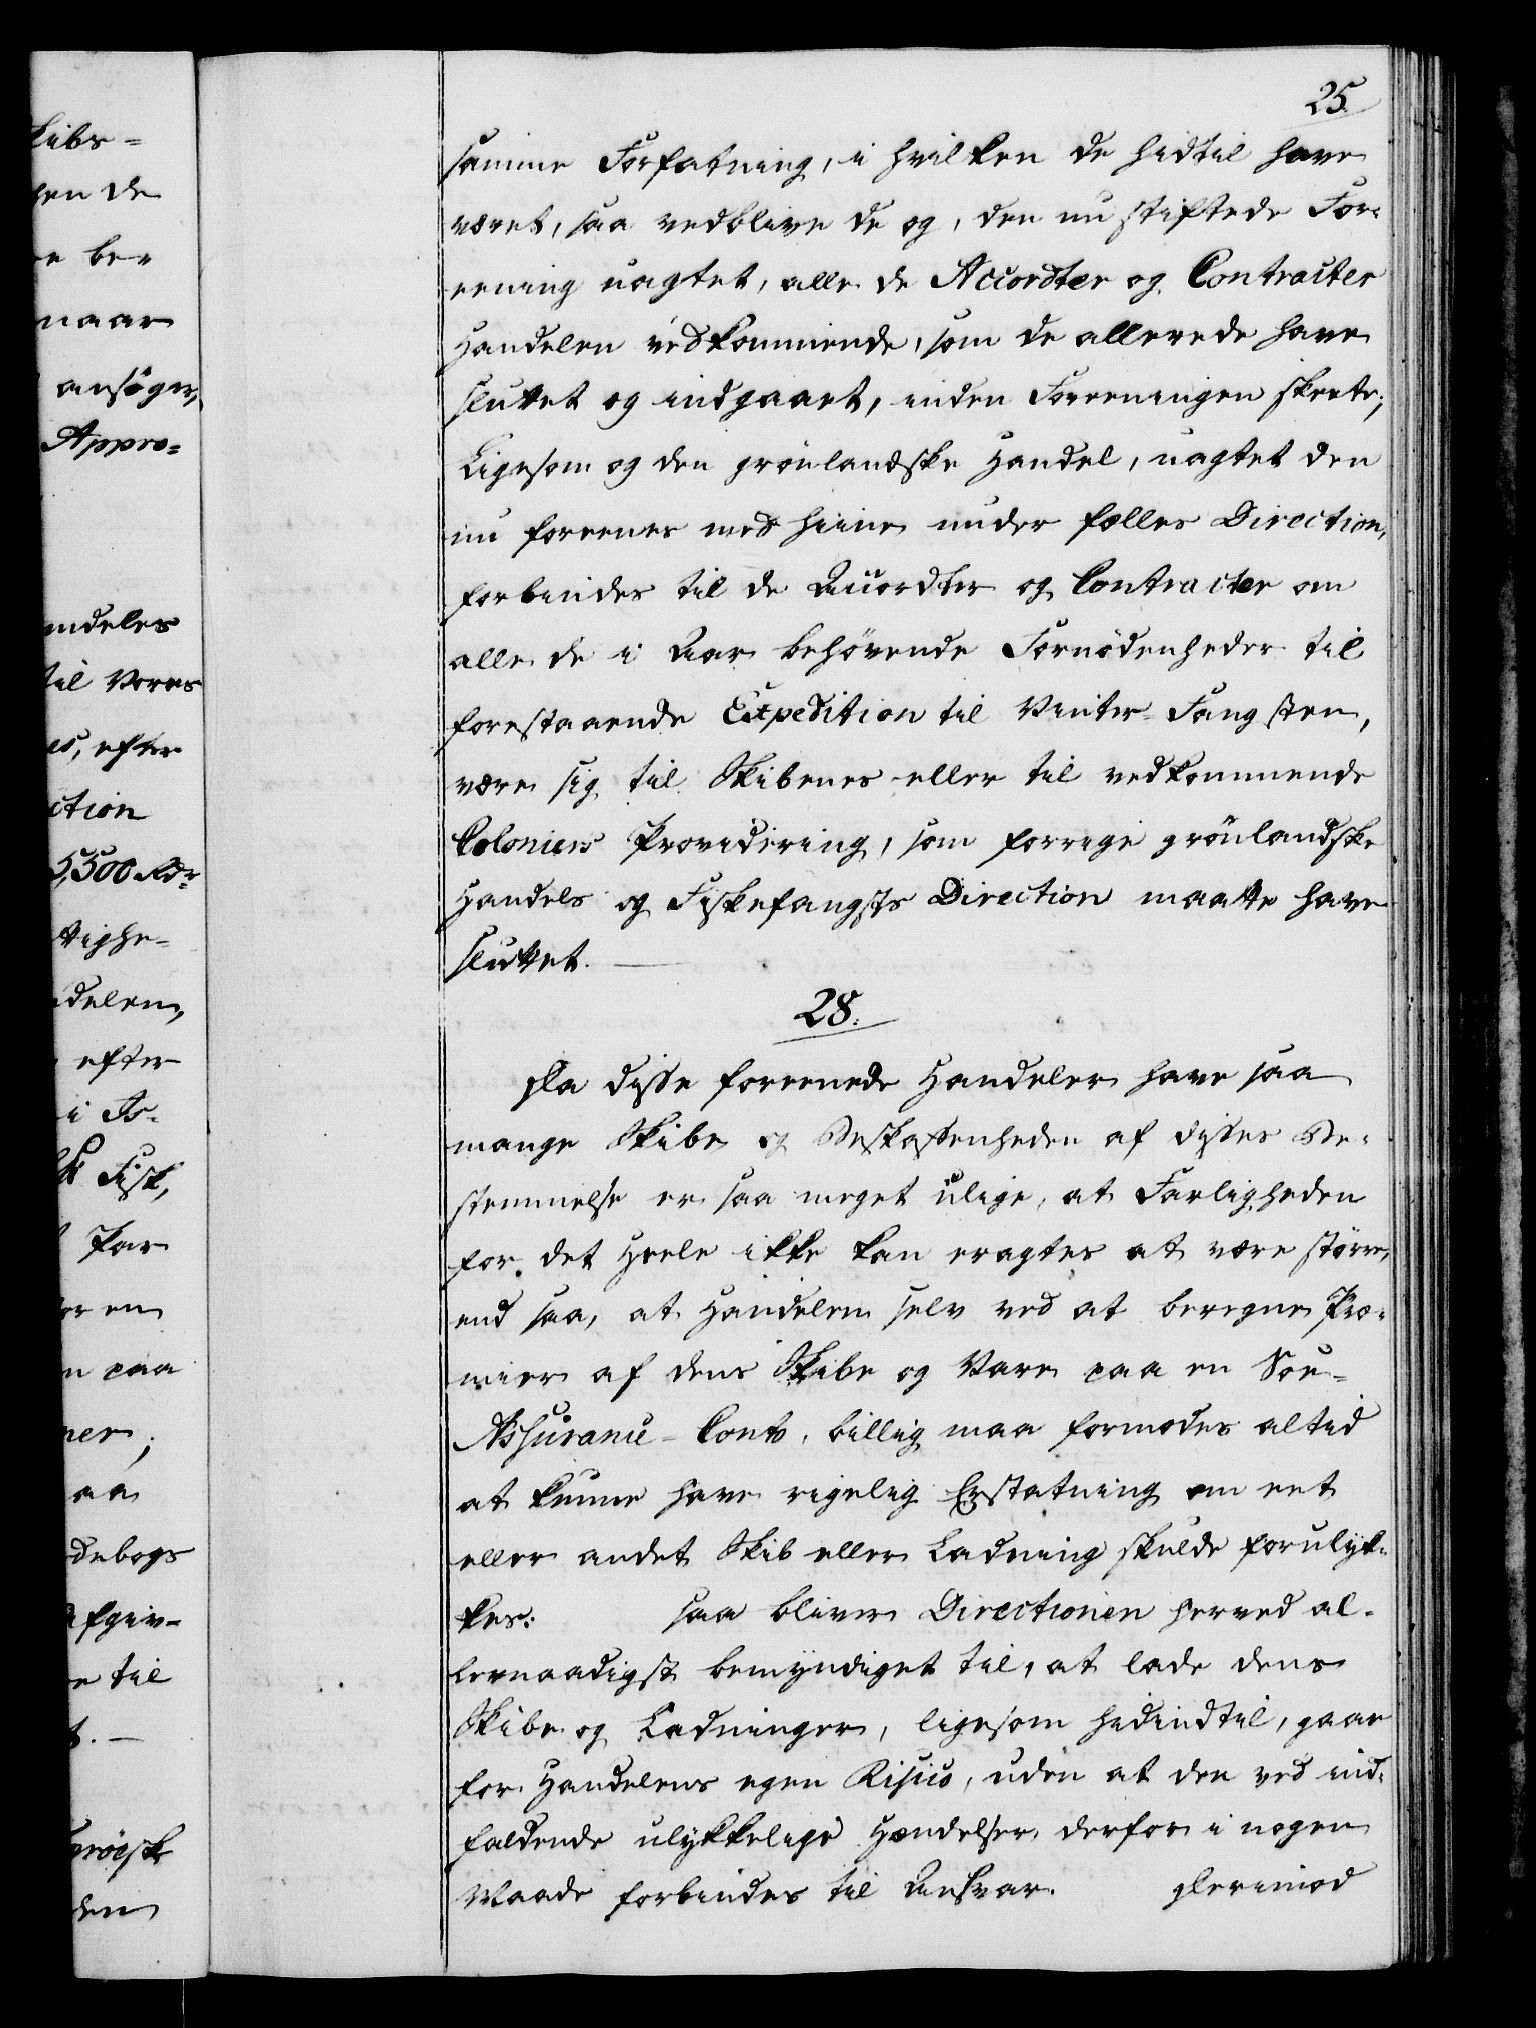 25.
samme Forfatning, i hvilken de hidtil have
været, saa vedblive de og, den nu stiftede For-
eening uagtet, alle de Accordter og Contracter
Handelen vedkommende, som de allerede have
sluttet og indgaaet, inden Foreeningen skeete;
Ligesom og den grönlandske Handel, uagtet den
nu foreenes med hiine under fælles Direction,
forbindes til de Accordter og Contracter om
alle de i Aar behövende Fornödenheder til
forestaaende Expedition til Vinter-Fangsten,
være sig til Skibenes eller til vedkommende
Coloniers Providering, som forrige grönlandske
Handels og Fiskefangsts Direction maatte have
sluttet.
28.
Da disse foreenede Handeler have saa
mange Skibe og Beskaffenheden af disses Be-
stemmelse er saa meget ulige, at Farligheden
for det Heele ikke kan eragtes at være större,
end saa, at Handelen selv ved at beregne Præ-
mier af dens Skibe og Vare paa en Söe-
Assurance-Conto, billig maa formodes altid
at kunne have rigelig Erstatning om eet
eller andet Skib eller Ladning skulde forulyk-
kes: saa bliver Directionen herved al-
lernaadigst bemyndiget til, at lade dens
Skibe og Ladninger, ligesom hidindtil, gaae
for Handelens egen Risico, uden at den ved ind-
faldende ulykkelige Hændelser derfor i nogen
Maade forbindes til Ansvar. Derimod
kibs-
hen de
e be-
naar
ansöger,
Appro-
mdeles
til Vores
es, efter
ction
5,500 Rdr
ttighe-
delen,
efter
i Is-
Fisk,
Par
for en
n paa
ner;
aa
debogs
afgiv-
e til
t. —
den